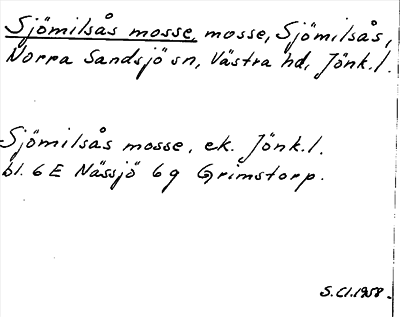 Sjömilsås mosse, mosse, Sjömilsås,
Norra Sandsjö sn, Västra hd, Jönk.l.
Sjömilsås mosse, ek. Jönk.l.
bl. 6E Nässjö 6g Grimstorp.
S.Cl.1958.